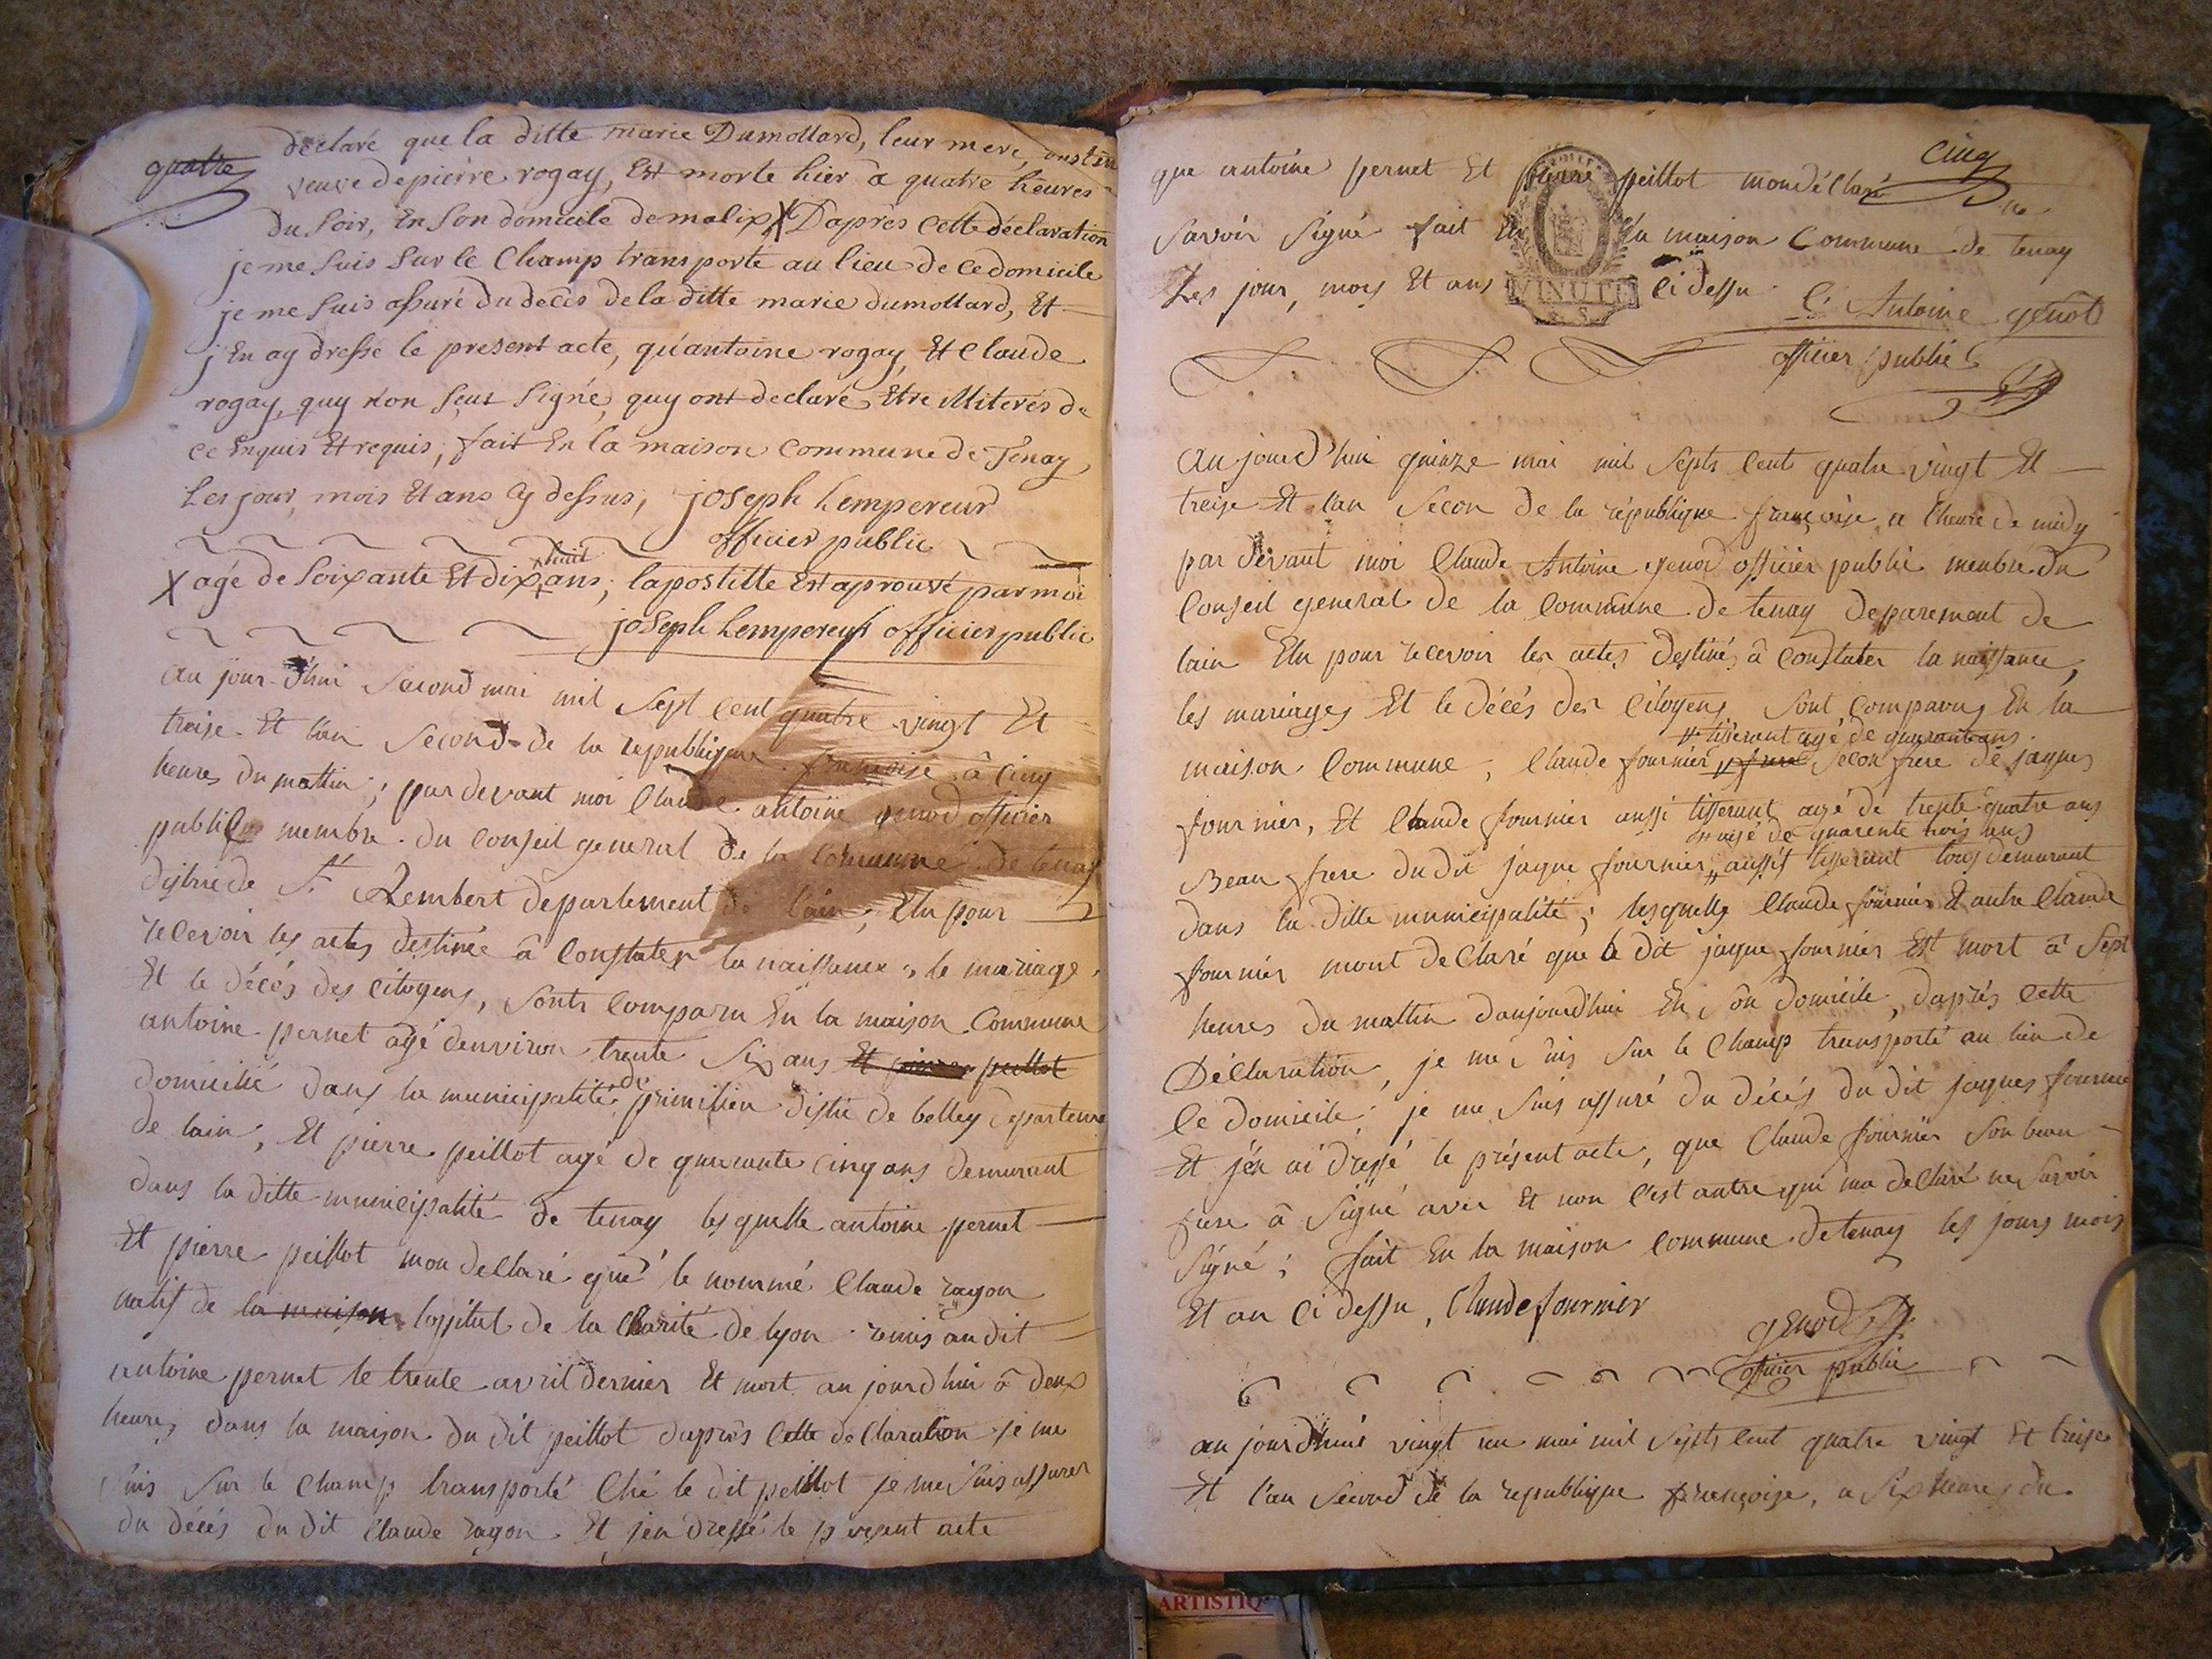 quatre
déclaré que la ditte marie Dumollard, leur mere,
veuve de pierre rogay, Est morte hier a quatre heures
du soir, En son domicile de malix X D'apres cette déclaration
je me suis sur le Champ transporté au lieu de ce domicile
je me suis assuré du décès de la ditte marie dumollard, Et
j'En ay dressé le present acte, qu'antoine rogay, Et Claude
rogay, quy n'on seus signé, quy ont declaré Etre illiterés de
ce Enquis Et requis, fait En la maison commune de Tenay
Les jour, mois Et ans Cy dessus, joseph Lempereur
officier public
huit
X agé de soixante Et dix ans, lapostille Est aprouvé par moi
joseph Lempereur officier public
au jour-d'hui second mai mil sept cent quatre vingt Et
treise Et l'an second de la republique françoise â Cinq
heures du mattin; par devant moi Claude antoine genod officier
public membre du conseil general de la Commune de tenay
distric de St Rembert departement de l'ain, Elu pour
recevoir les actes destinée â Constater la naissance, le mariage,
Et le décés des citoyens, sonts comparu En la maison Commune
antoine pernet agé d'environ trente six ans Et pierre peillot
domicilié dans la municipalité de primilieu distric de belley departeme
de lain, Et pierre peillot agé de quarante cinq ans demurant
dans la ditte municipalité de tenay lesquelle antoine pernet
Et pierre peillot mon declaré que le nommé Claude ragon
natif de la maison lopital de la Charité de lyon remis au dit
antoine pernet le trente avril dernier Et mort aujourdhui â deux
heures dans la maison du dit peillot daprès Cette declaration je me
suis sur le champ transporté Ché le dit peillot je me suis assurer
du décés du dit Claude ragon Et j'en dressé le present acte
Cinq
que antoine pernet Et pierre peillot mondéclaré ne
savoir signé fait En la maison Commune de tenay
Les jour, mois Et ans ci dessu C. Antoine genod
MINUTE
officier public
Aujourd'hui quinze mai mil septs cent quatre vingt Et
treise Et l'an Secon de la république françoise a lheure de midy
par devant moi Claude Antoine genod officier public menbre du
Conseil general de la commune de tenay deparement de
lain Elu pour recevoir les actes destinés â constater la naissance,
les mariages Et le décés des Citoyens, sont comparus En la
tisserant agé de quarante ans
maison Commune, Claude fournier frere secon frere de jaques
fournier, Et Claude fournier aussi tisserant agé de trente quatre ans
agé de quarente trois ans
Beau frere du dit jaque fournier aussi tisserant tous demurant
dans la ditte municipalité; lesquelle Claude fournier Et autre Claude
fournier mont declaré que le dit jaque fournier Est mort â sept
heures du mattin daujourd'hui En son domicile, daprés Cette
Déclaration, je me suis sur le Champ transporté au lieu de
Ce domicile, je me suis assuré du décés du dit jaques fournier
Et j'en ai dressé le présent acte, que Claude fournier son beau
frere â signé avec Et non C'est autre qui ma declaré ne savoir
signé; fait En la maison commune de tenay les jours mois
Et an Ci dessu, Claude fournier
genod
officier public
aujourd'huis vingt un mai mil septs cent quatre vingt Et treise
Et l'an second de la republique françoise, a six heures du
ARTISTIQ